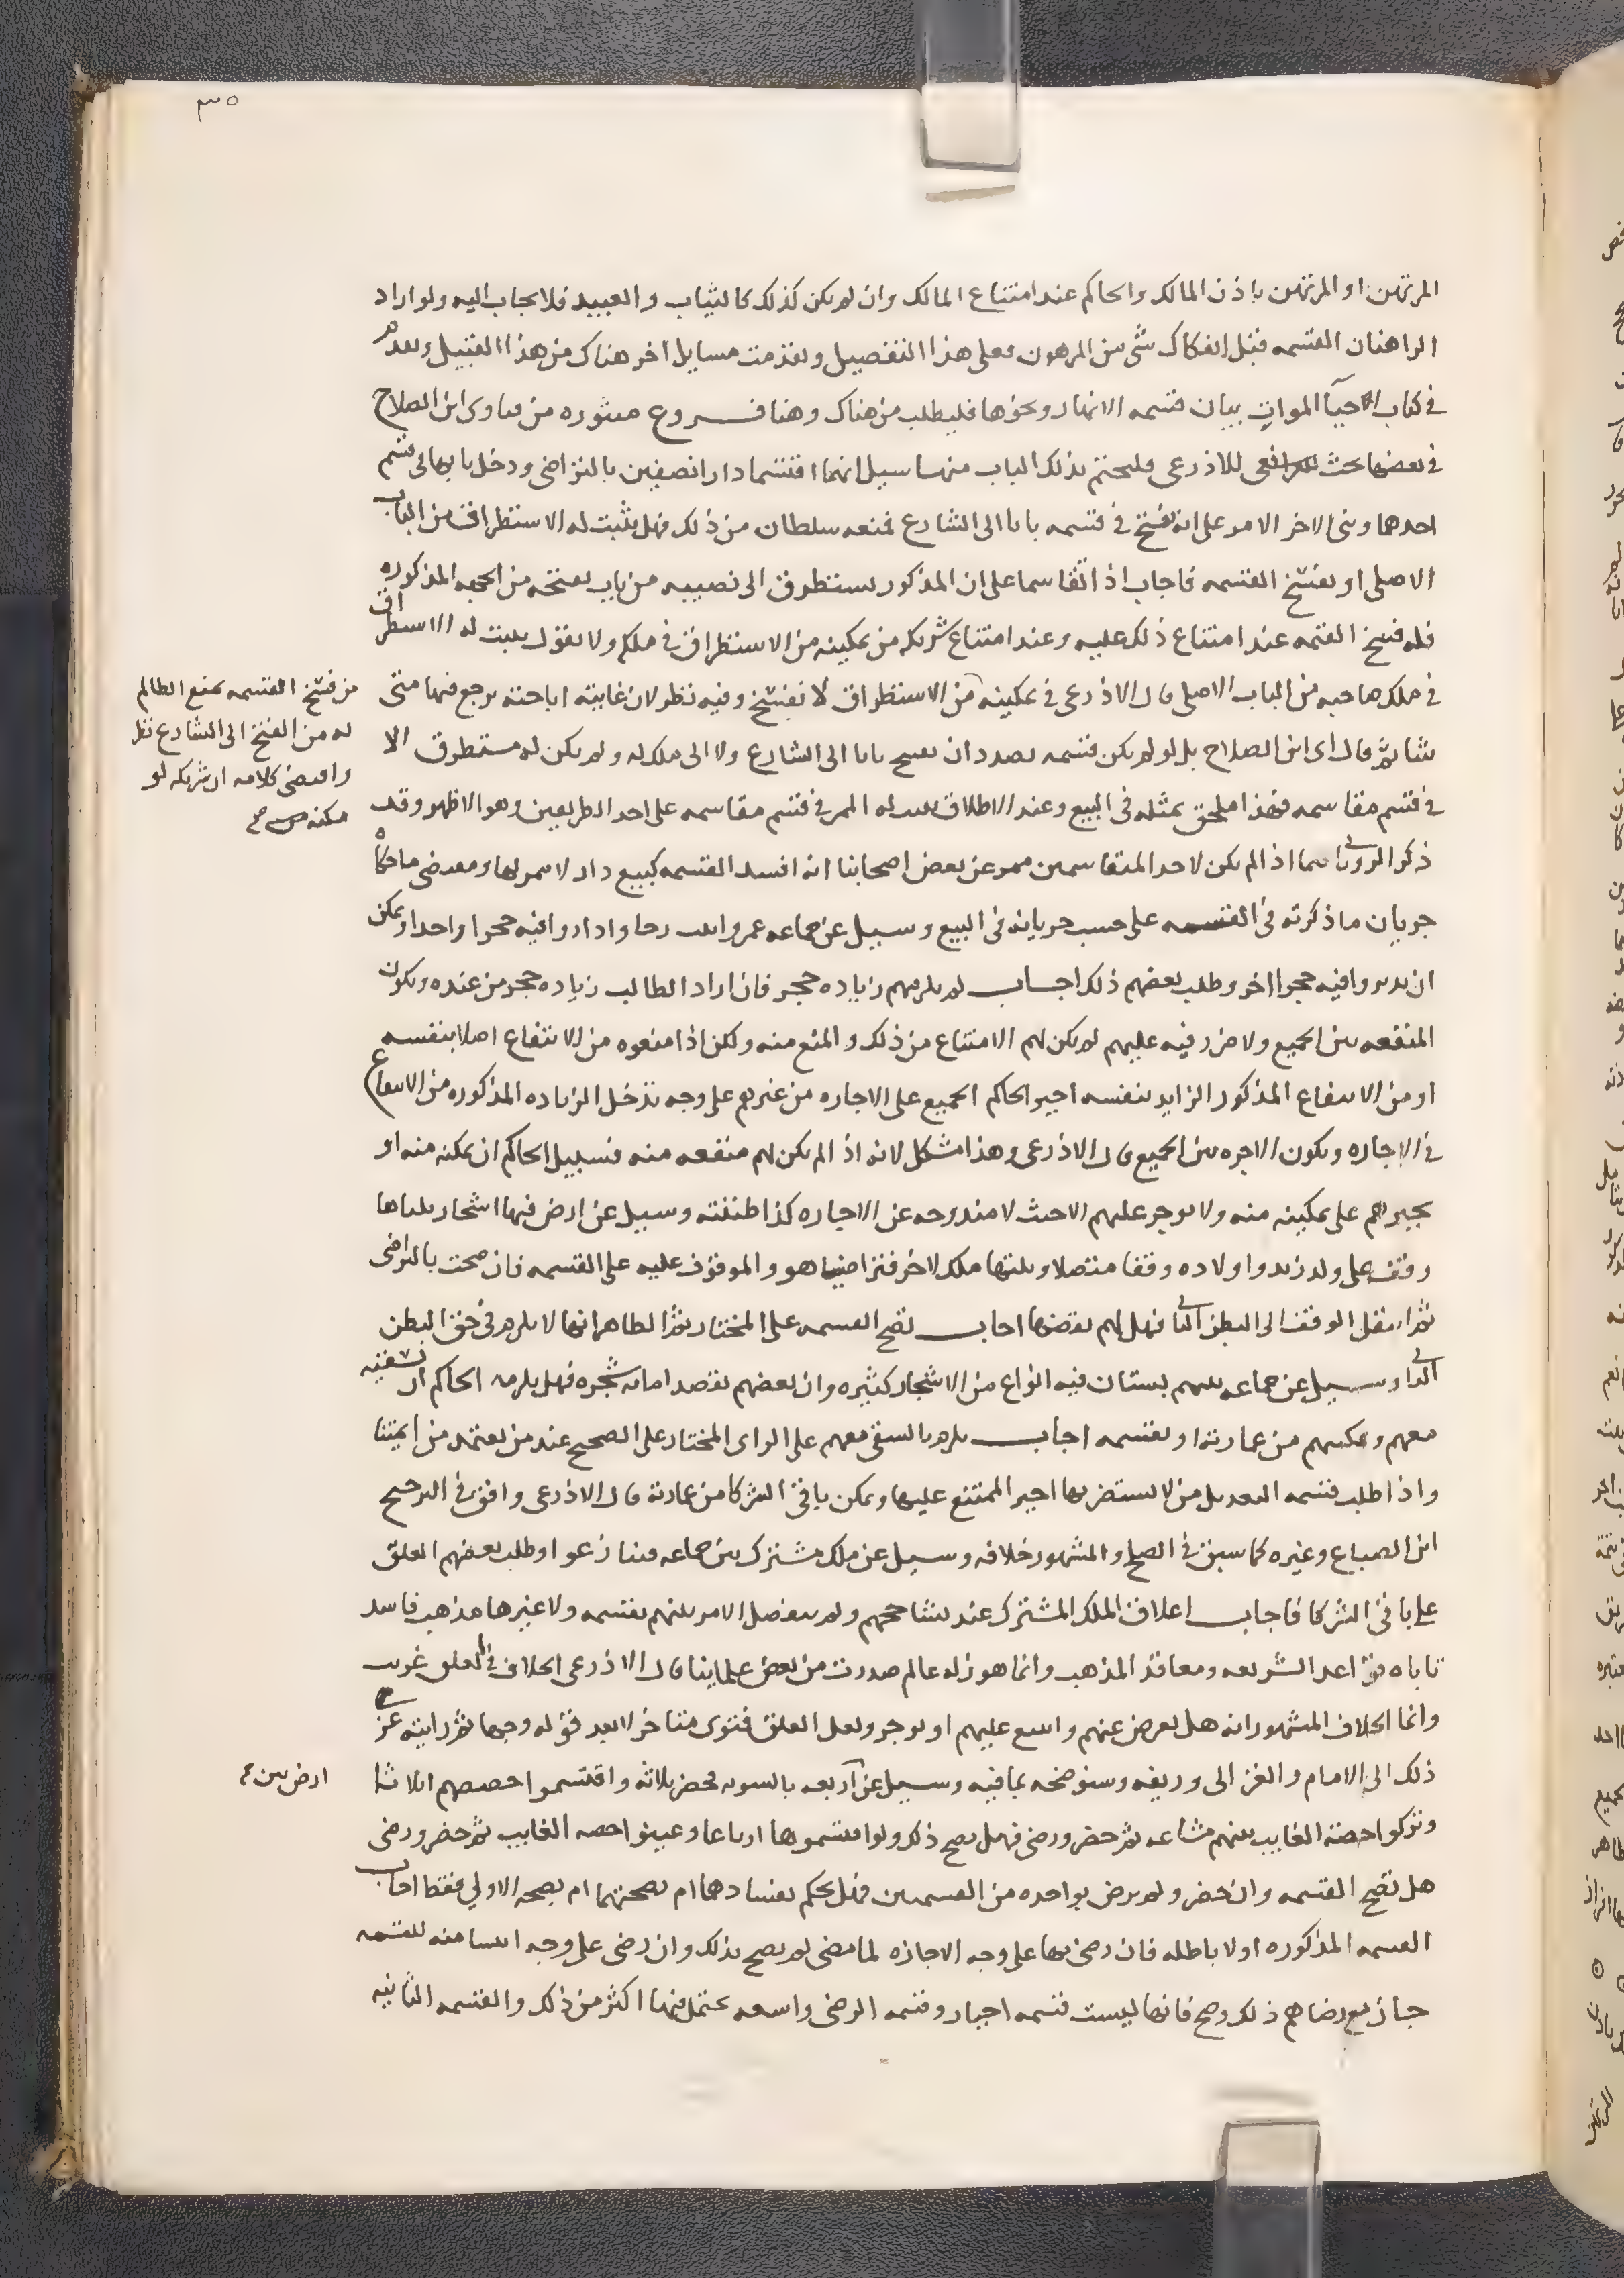 ٣٥
المرتهن او المرتهن باذن المالك والحاكم عند امتناع المالك وان لم يكن كذلك كالثياب والعبيد فلا يجاب اليه ولو اراد
الراهنان القسمه قبل انفكاك شى من المرهون فعلى هذا التفصيل وتقدمت مسايل اخر هناك من هذا القبيل وبعده
فى كتاب احيآ الموات بيان قسمه الانهار ونحوها فليطلب من هناك وهنا فروع منثوره من فتاوى ابن الصلاح
فى بعضها بحث للاذرعى فليختم بذلك الباب منها سيل انهما اقتسما دارا نصفين بالتراضى ودخل بابها فى قسم
احدهما وبنى الاخر الامر على انه يفتح فى قسمه بابا الى الشارع فمنعه سلطان من ذلك فهل يثبت له الاستطراق من الباب
الاصلى او يفسخ القسمه فاجاب اذا تقاسما على ان المذكور يستطرق الى نصيبه من باب يفتحه من الجهه المذكوره
فله فسخ القسمه عند امتناع ذلك عليه وعند امتناع شريكه من تمكينه من الاستطراق فى ملكه ولا نقول يثبت له الاستطراق
فى ملك صاحبه من الباب الاصلى قال الاذرعى فى تمكينه من الاستطراق لا تفسخ وفيه نظر لان غايته اباحته يرجع فيها متى
شا ثم قال اى ابن الصلاح بل لو لم يكن قسمه بصدد ان يفتح بابا الى الشارع ولا الى ملك له ولم يكن له مستطرق الا
فى قسم مقاسمه فهذا ملحق بمثله فى البيع وعند الاطلاق يثبت له الممر فى قسم مقاسمه على احد الطريقين وهو الاظهر وقد
ذكر الرويانى فيما اذا لم يكن لاحد المتقاسمين ممر عن بعض اصحابنا انه افسد القسمه كبيع دار لا ممر لها ومقتضى ما حكاه
جريان ما ذكرته فى القسمه على حسب جريانه فى البيع وسيل عن جماعه عمروا بيت رحا واداروا فيه حجرا واحدا ويمكن
ان يديروا فيه حجرا اخر وطلب بعضهم ذلك اجاب لم يلزمهم زياده حجر فان اراد الطالب زياده حجر من عنده وتكون
المنفعه بين الجميع ولا ضرر فيه عليهم لم يكن لهم الامتناع من ذلك والمنع منه ولكن اذا منعوه من الانتفاع اصلا بنفسه
او من الانتفاع المذكور الزايد بنفسه اجبر الحاكم الجميع على الاجاره من غيرهم على وجه تدخل الزياده المذكوره من الانتفاع
فى الاجاره وتكون الاجره بين الجميع قال الاذرعى وهذا مشكل لانه اذا لم يكن لهم منفعه منه فسبيل الحاكم ان يمكنه منه او
يجبرهم على تمكينه منه ولا يوجر عليهم الا حيث لا مندوحه عن الاجاره كذا ظننته وسيل عن ارض فيها اشجار ثلثاها
وقف على ولد زيد واولاده وقفا متصلا وثلثها ملك لاخر فتراضيا هو والموقوف عليه على القسمه فان صحت بالتراضى
ثم انتقل الوقف الى البطن الثانى فهل لهم نقضها اجاب تصح القسمه على المختار ثم الظاهر انها لا تلزم فى حق البطن
الثانى وسيل عن جماعه بينهم بستان فيه انواع من الاشجار كثيره وان بعضهم يقصد اماته شجره فهل يلزمه الحاكم ان يسقيه
معهم ويمكنهم من عمارته او يقسمه اجاب يلزم بالسقى معهم على الراى المختار على الصحيح عند من يعتمد من ايمتنا
واذا طلب قسمه التعديل من لا يستضر بها اجبر الممتنع عليها ويمكن باقى الشركا من عمارته قال الاذرعى وافق فى الترجيح
ابن الصباغ وغيره كما سبق فى الصلح والمشهور خلافه وسيل عن ملك مشترك بين جماعه فتنازعوا وطلب بعضهم الغلق
على باقى الشركا فاجاب اغلاق الملك المشترك عند تشاححهم ولم ينفصل الامر بينهم بقسمه ولا غيرها مذهب فاسد
تاباه قواعد الشريعه ومعاقد المذهب وانما هو زله عالم صدرت من بعض علماينا قال الاذرعى الخلاف فى الغلق غريب
وانما الخلاف المشهور انه هل يعرض عنهم او يبيع عليهم او يوجر ولعل الغلق فتوى متاخر لا يعد قوله وجها ثم رايته عزى
ذلك الى الامام والغزالى وزيفه وسنوضحه بما فيه وسيل عن اربعه بالسويه فحضر ثلاثه واقتسموا حصصهم اثلاثا
وتركوا حصة الغايب بينهم مشاعه ثم حضر ورضى فهل يصح ذلك ولو اقتسموها ارباعا وعينوا حصه الغايب ثم حضر ورضى
هل تصح القسمه وان حضر ولم يرض بواحده من القسمين فهل يحكم بفسادهما ام بصحتهما ام بصحه الاولى فقط اجاب
القسمه المذكوره اولا باطله فان رضى بها على وجه الاجازه لما مضى لم يصح بذلك وان رضى على وجه انشا منه للقسمه
جاز مع رضاهم ذلك وصح فانها ليست قسمه اجبار وقسمه الرضى واسعه يحتمل فيها اكثر من ذلك والقسمه الثانيه
من فسخ القسمه بمنع الظالم
له من الفتح الى الشارع نظر
واقتضى كلامه ان شريكه لو
مكنه من صح
ارض بين صح